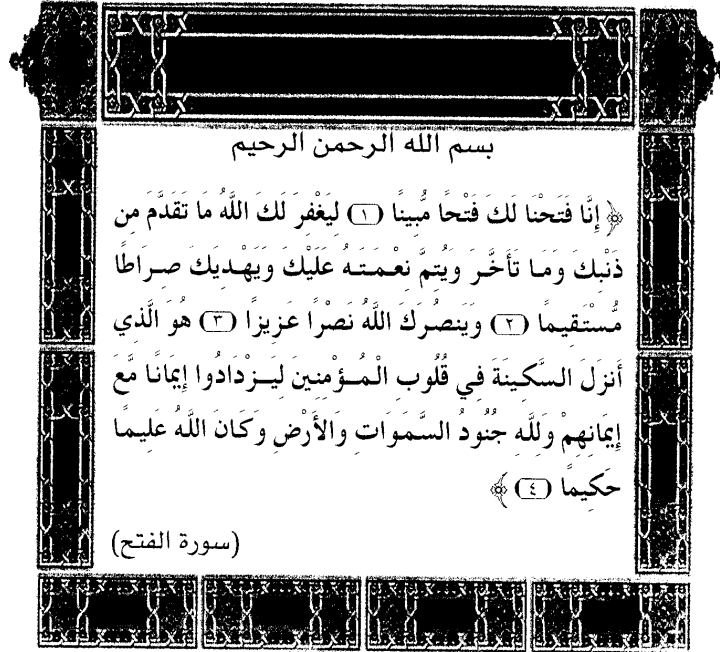 بسم الله الرحمن الرحيم
﴿ إِنَّا فَتَحْنَا لَكَ فَتْحًا مُّبِينًا (١) لِيَغْفِرَ لَكَ اللَّهُ مَا تَقَدَّمَ مِن
ذَنْبِكَ وَمَا تَأَخَّرَ وَيُتِمَّ نِعْمَتَهُ عَلَيْكَ وَيَهْدِيَكَ صِرَاطًا
مُّسْتَقِيمًا (٢) وَيَنصُرَكَ اللَّهُ نَصْرًا عَزِيزًا (٣) هُوَ الَّذِي
أَنزَلَ السَّكِينَةَ فِي قُلُوبِ الْمُؤْمِنِينَ لِيَزْدَادُوا إِيمَانًا مَّعَ
إِيمَانِهِمْ وَلِلَّهِ جُنُودُ السَّمَوَاتِ وَالأَرْضِ وَكَانَ اللَّهُ عَلِيمًا
حَكِيمًا (٤) ﴾
(سورة الفتح)